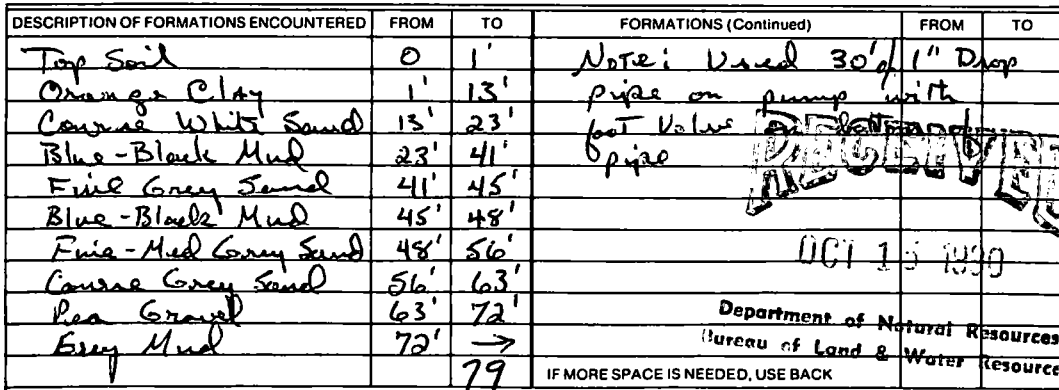 DESCRIPTION OF FORMATIONS ENCOUNTERED FROM TO
Top Soil 0 1'
Orange Clay 1' 13'
Course White Sand 13' 23'
Blue-Black Mud 23' 41'
Fine Grey Sand 41' 45'
Blue-Black Mud 45' 48'
Fine-Med Grey Sand 48' 56'
Course Grey Sand 56' 63'
Pea Gravel 63' 72'
Grey Mud 72' →
79
FORMATIONS (Continued) FROM TO
NOTE: Used 30' of 1" Drop
pipe on pump with
foot Valve on bottom of
pipe
RECEIVED
OCT 15 1990
Department of Natural Resources
Bureau of Land & Water Resource
IF MORE SPACE IS NEEDED, USE BACK